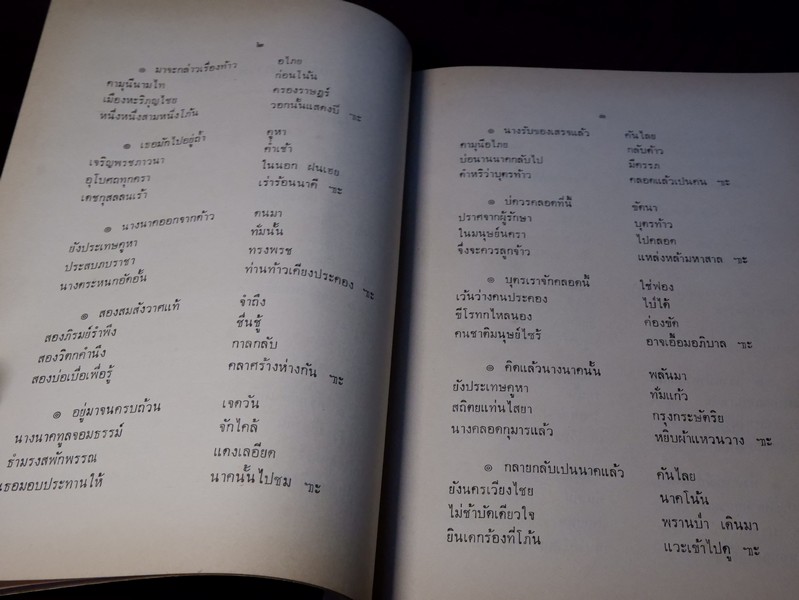 ๒
๏ มาจะกล่าวเรื่องท้าว อไภย
คามุนีนามไท ก่อนโน้น
เมืองหะริภุญไชย ครองราษฎร์
หนึ่งหนึ่งสามหนึ่งโก้น วอกนั้นแสดงปี ฯะ
๏ เธอมักไปอยู่ถ้ำ คูหา
เจริญพรชภาวนา ค่ำเช้า
อุโบศถทุกครา ในนอก ฝนเฮย
เดชกุสลลนเร้า เร่าร้อนนาคี ฯะ
๏ นางนาคออกจากด้าว ตนมา
ยังประเทษคูหา ที่มนั้น
ประสบภบราชา ทรงพรช
นางตระหนกอัดอั้น ท่านท้าวเคียงประคอง ฯะ
๏ สองสมสังวาศแท้ จำถึง
สองภิรมย์รำพึง ชื่นชู้
สองวิตกคำนึง กาลกลับ
สองบ่อเบื่อเพื่อรู้ คลาศร้างห่างกัน ฯะ
๏ อยู่มาจนครบถ้วน เจดวัน
นางนาคทูลจอมธรรม์ จักไคล้
ธำมรงสพักพรรณ แดงเลอียด
เธอมอบประทานให้ นาคนั้นไปชม ฯะ
๓
๏ นางรับของเสรจแล้ว คันไลย
คามุนีอไภย กลับด้าว
บ่อนานนาคกลับไป มีครรภ
คำหริว่าบุตรท้าว คลอดแล้วเปนคน ฯะ
๏ บ่ควรคลอดที่นี้ ขัดนา
ปราศจากผู้รักษา บุตรท้าว
ในมนุษย์นครา ไปคลอด
จึ่งจะควรลูกจ้าว แหล่งหล้ามหาสาล ฯะ
๏ บุตรเราจักคลอดนี้ ใช่ฟอง
เว้นว่างคนประคอง ไป่ได้
ชีโรทกไหลนอง ต่องขัด
คนชาติมนุษย์ไซร้ อาจเอื้อมอภิบาล ฯะ
๏ คิดแล้วนางนาคนั้น พลันมา
ยังประเทษคูหา ที่มแก้ว
สถิตยแท่นไสยา กรุงกระษัตริย
นางคลอดกุมารแล้ว หยิบผ้าแหวนวาง ฯะ
๏ กลายกลับเปนนาคแล้ว คันไลย
ยังนครเวียงไชย นาคโน้น
ไม่ช้าบัดเดียวใจ พรานป่า เดินมา
ยินเดกร้องที่โก้น แวะเข้าไปดู ฯะ